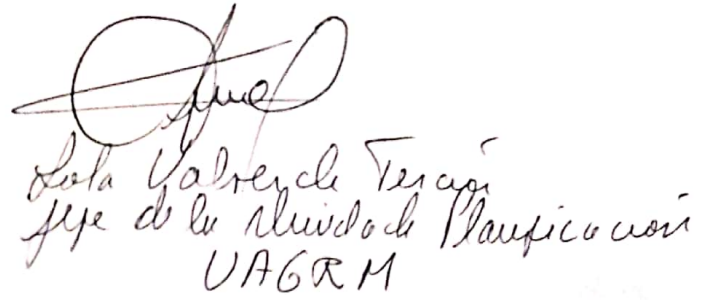 Lola Valverde Terán
Jefe de la Unidad de Planificación
UAGRM